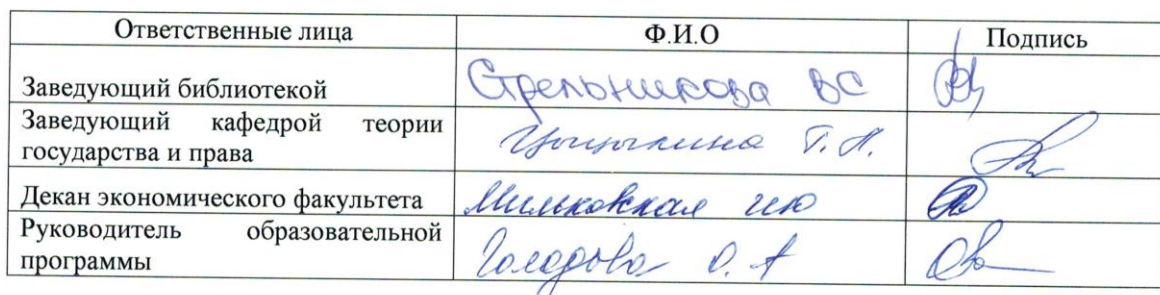 Ответственные лица Ф.И.О Подпись
Заведующий библиотекой Стрельникова ВС
Заведующий кафедрой теории
государства и права Цыцыкина Т.Н.
Декан экономического факультета Мильковская ию
Руководитель образовательной
программы О.А